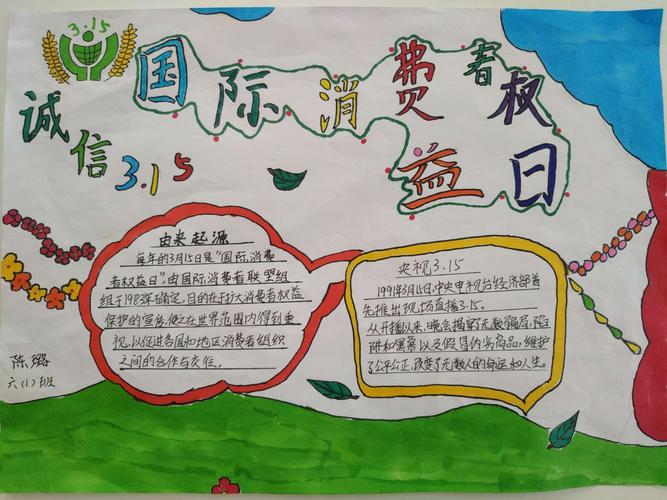 3.15
国际消费者权益日
诚信3.15
由来起源
每年的3月15日是“国际消费
者权益日”,由国际消费者联盟组
组于1983年确定,目的在于扩大消费者权益
保护的宣传,使之在世界范围内得到重
视,以促进各国和地区消费者组织
之间的合作与交往。
央视3.15
1991年3月15日,中央电视台经济部首
先推出现场直播3.15。
从开播以来,晚会揭穿了无数骗局,陷
阱和黑幕以及假冒伪劣商品,维护
了公平公正,改变了无数人的命运和人生。
陈璐
六(1)班